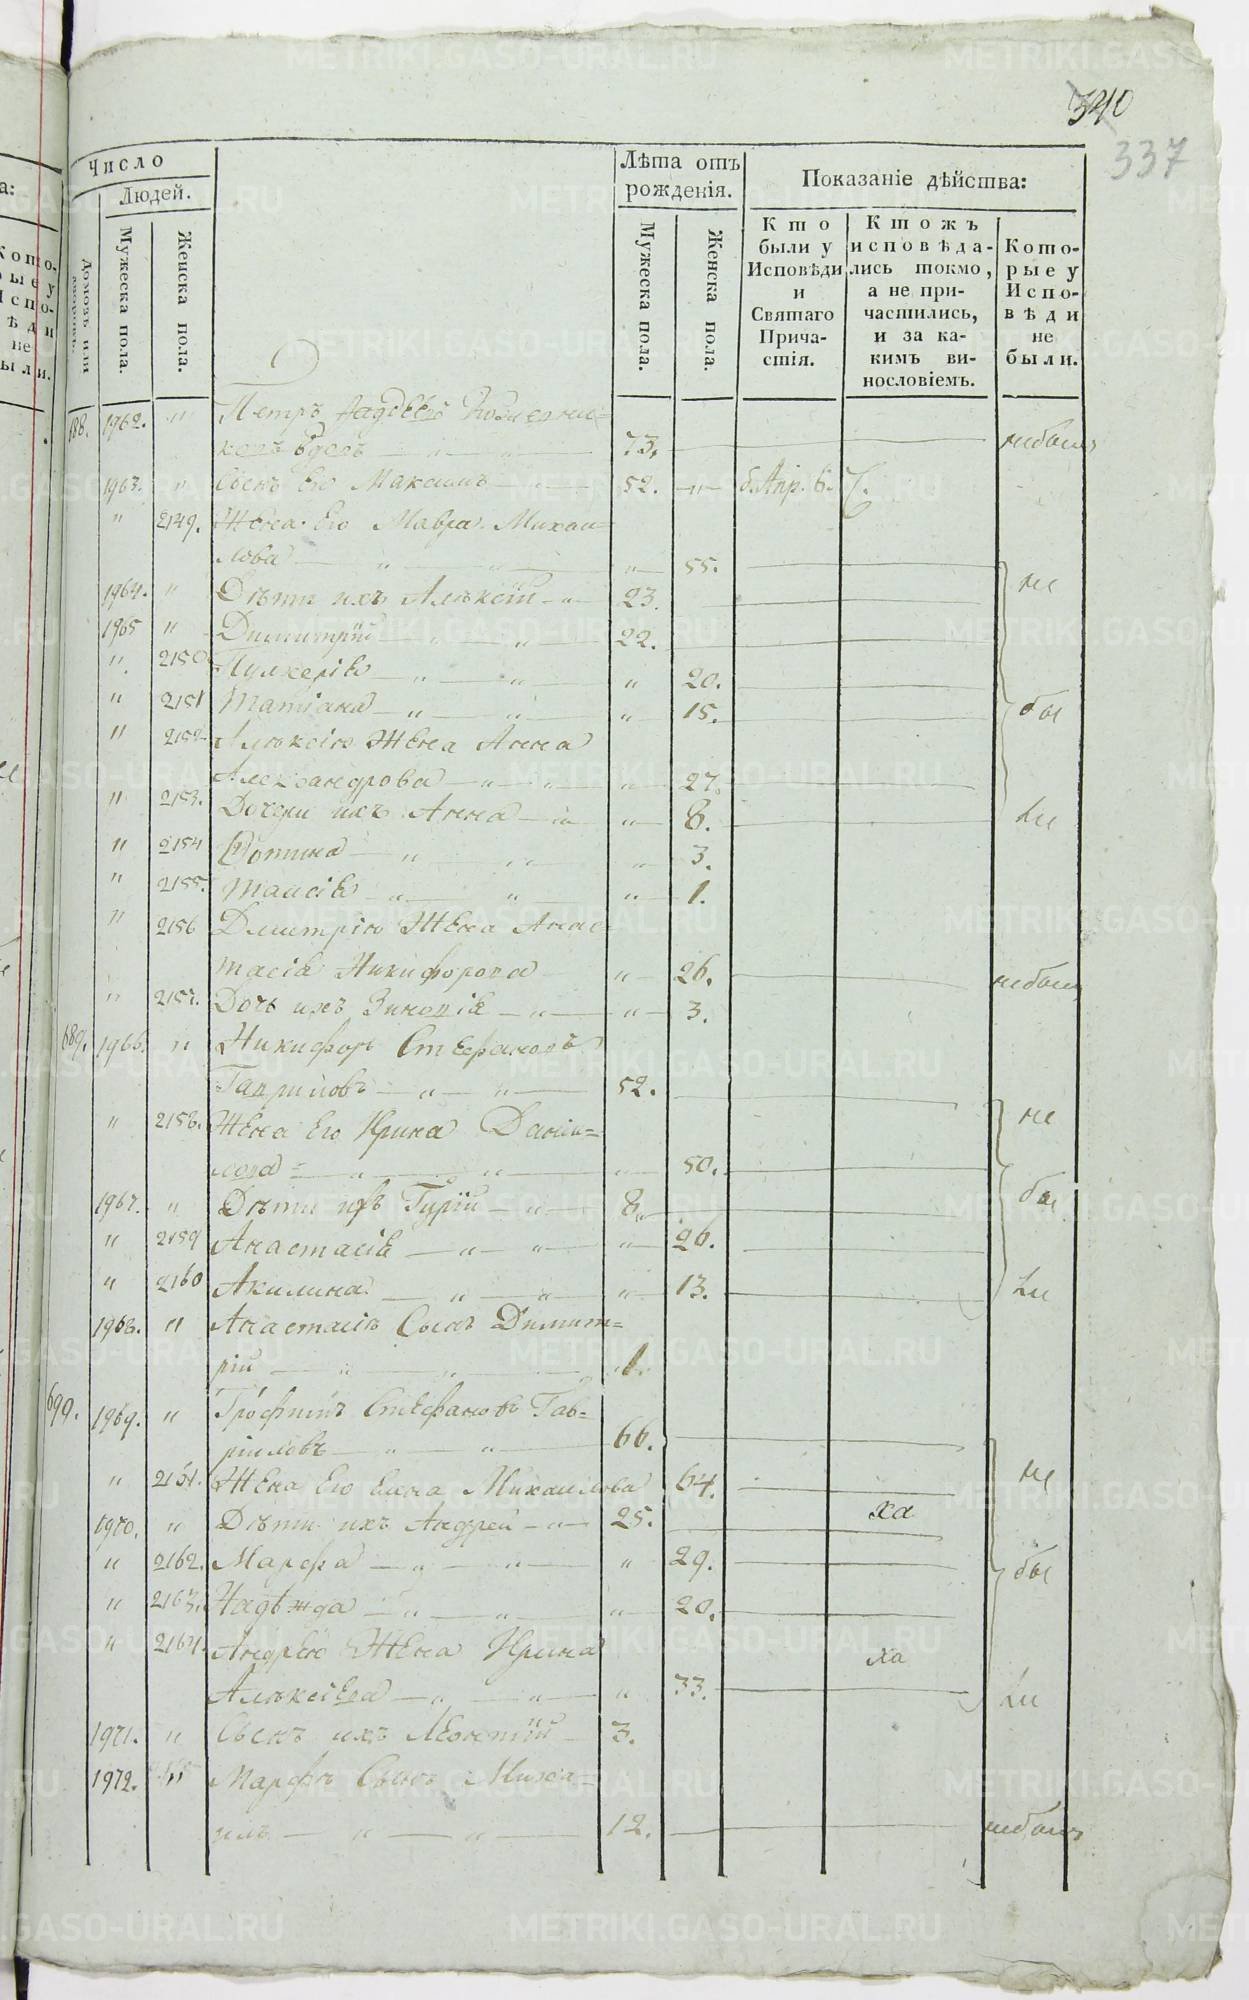 340
337
Число
Людей.
Лѣта отъ
рожденія.
Показаніе дѣйства:
Домовъ или
дворовъ.
Мужеска пола.
Женска пола.
Мужеска пола.
Женска пола.
Кто
были у
Исповѣди
и
Святаго
Прича-
стія.
Ктожъ
исповѣда-
лись токмо,
а не при-
частились,
и за ка-
кимъ ви-
нословіемъ.
Кото-
рые у
Испо-
вѣди
не
были.
688. 1962. " Петръ
вдовъ 73. небылъ
1963. " Сынъ Его Максимъ 52. Апр. 6.
" 2149. Жена Его Мавра Михаи=
лова " 55.
1964. " Дѣти ихъ Алѣксѣй 23. не
1965 " Димитрій 22.
" 2150 Пулхерія " 20.
" 2151 Татіана " 15. бы
" 2152 Алѣксѣю Жена Анна
Александрова " 27.
" 2153. Дочери ихъ Анна " 8. ли
" 2154 Фотина " 3.
" 2155. Таисія " 1.
" 2156 Дмитрію Жена Анас
тасія Никифорова " 26. небыла
" 2157. Дочь ихъ Зиновія " 3.
689. 1966. " Никифоръ Стефановъ
Гавриловъ 52.
" 2158. Жена Его Ирина Даніи=
лова " 50. не
1967. " Дѣти ихъ Гурій 8. бы
" 2159 Анастасія " 26.
" 2160 Акилина " 13. ли
1968. " Анастасіи Сынъ Димит=
рій 1.
690. 1969. " Трофимъ Стефановъ Гав=
ріиловъ 66.
" 2161. Жена Его Елена Михаилова 64. не
1970. " Дѣти ихъ Андрей 25. ха
" 2162. Марфа " 29. бы
" 2163. Надѣжда " 20.
" 2164. Андрею Жена Ирина
Алѣксѣева " 33. ха ли
1971. " Сынъ ихъ Леонтій 3.
1972. " Марфы Сынъ Миха=
илъ 12. небылъ
METRIKI.GASO-URAL.RU